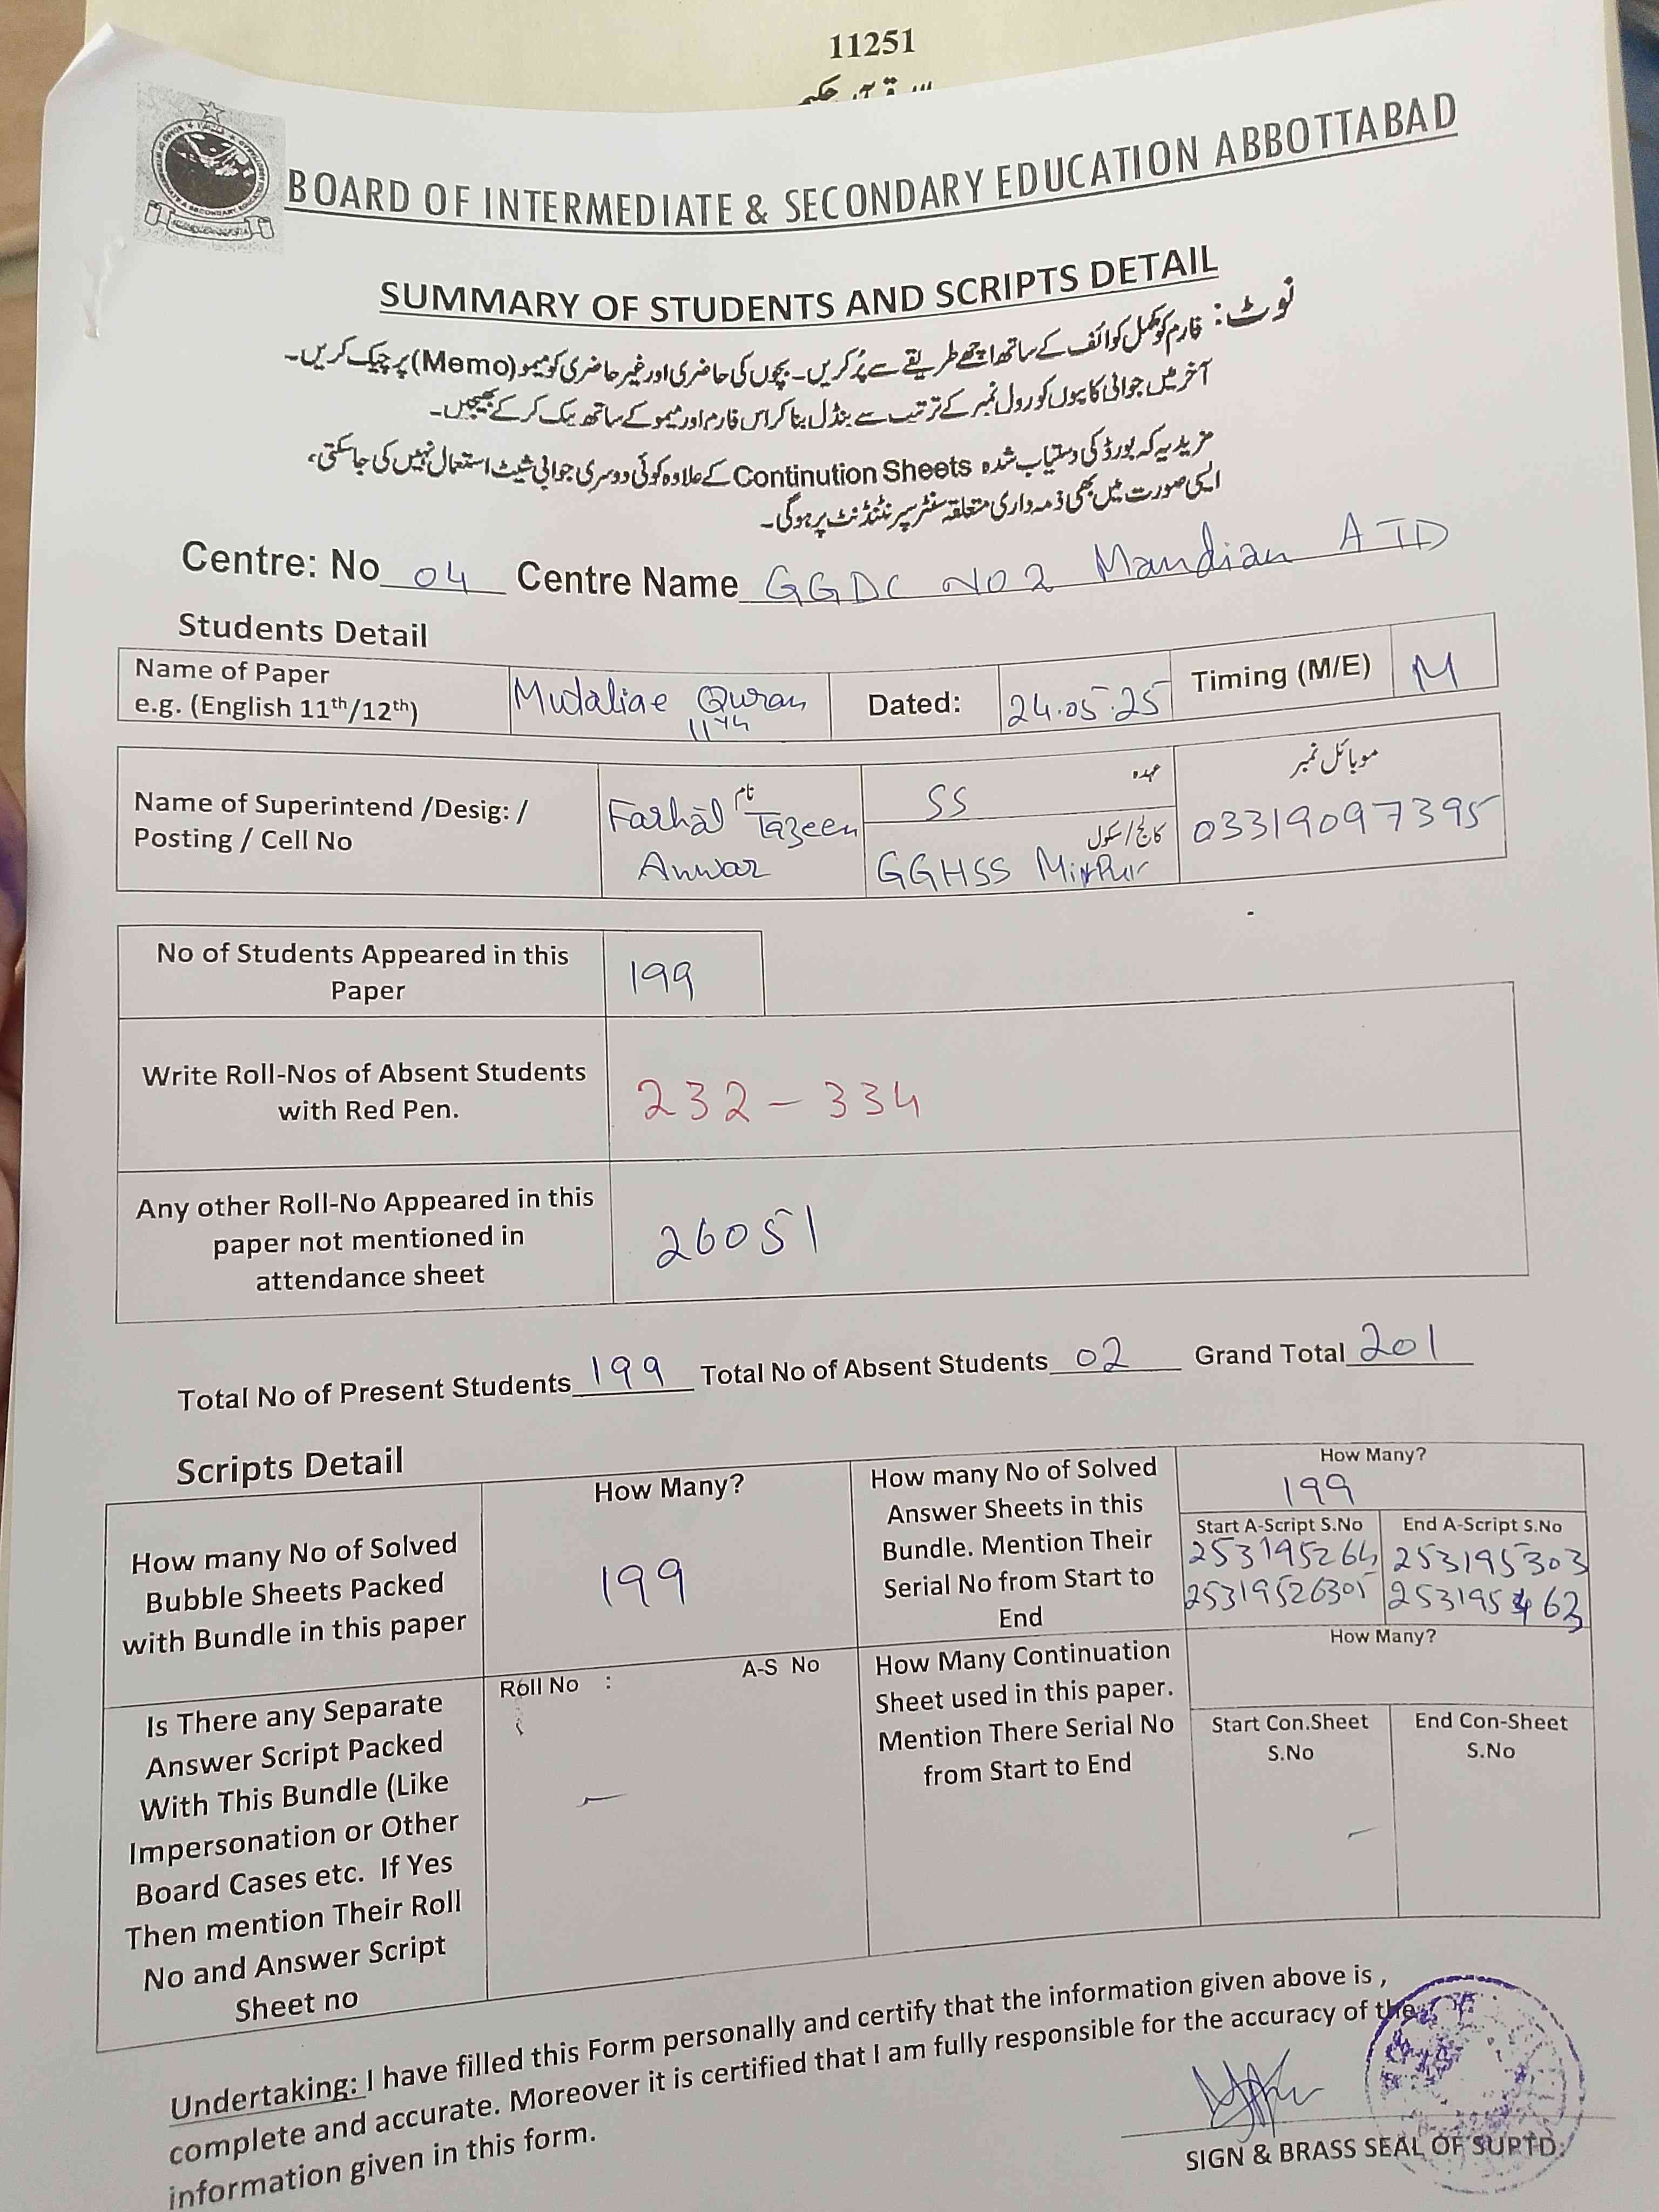 11251
BOARD OF INTERMEDIATE & SECONDARY EDUCATION ABBOTTABAD
SUMMARY OF STUDENTS AND SCRIPTS DETAIL
نوٹ: فارم کو مکمل کوائف کے ساتھ اچھے طریقے سے پُر کریں۔ بچوں کی حاضری اور غیر حاضری کو میمو (Memo) پر چیک کریں۔
آخر میں جوابی کاپیوں کو رول نمبر کے ترتیب سے بنڈل بنا کر اس فارم اور میمو کے ساتھ پیک کر کے بھیجیں۔
مزید یہ کہ بورڈ کی دستیاب شدہ Continution Sheets کے علاوہ کوئی دوسری جوابی شیٹ استعمال نہیں کی جا سکتی،
ایسی صورت میں بھی ذمہ داری متعلقہ سنٹر سپرنٹنڈنٹ پر ہوگی۔
Centre: No 04 Centre Name GGDC NO 2 Mandian ATD
Students Detail
Name of Paper
e.g. (English 11th/12th)
Mutaliae Quran
11th
Dated: 24.05.25 Timing (M/E) M
Name of Superintend /Desig: /
Posting / Cell No
نام
Farhat Tazeen
Anwar
عہدہ
SS
کالج/سکول
GGHSS Mirpur
موبائل نمبر
03319097395
No of Students Appeared in this
Paper
199
Write Roll-Nos of Absent Students
with Red Pen.
232 - 334
Any other Roll-No Appeared in this
paper not mentioned in
attendance sheet
26051
Total No of Present Students 199 Total No of Absent Students 02 Grand Total 201
Scripts Detail
How many No of Solved
Bubble Sheets Packed
with Bundle in this paper
How Many?
199
How many No of Solved
Answer Sheets in this
Bundle. Mention Their
Serial No from Start to
End
How Many?
199
Start A-Script S.No End A-Script S.No
253195264 253195303
25319526305 253195463
Is There any Separate
Answer Script Packed
With This Bundle (Like
Impersonation or Other
Board Cases etc. If Yes
Then mention Their Roll
No and Answer Script
Sheet no
Roll No : A-S No
How Many Continuation
Sheet used in this paper.
Mention There Serial No
from Start to End
How Many?
Start Con.Sheet
S.No
End Con-Sheet
S.No
Undertaking: I have filled this Form personally and certify that the information given above is ,
complete and accurate. Moreover it is certified that I am fully responsible for the accuracy of the
information given in this form.
SIGN & BRASS SEAL OF SUPTD: